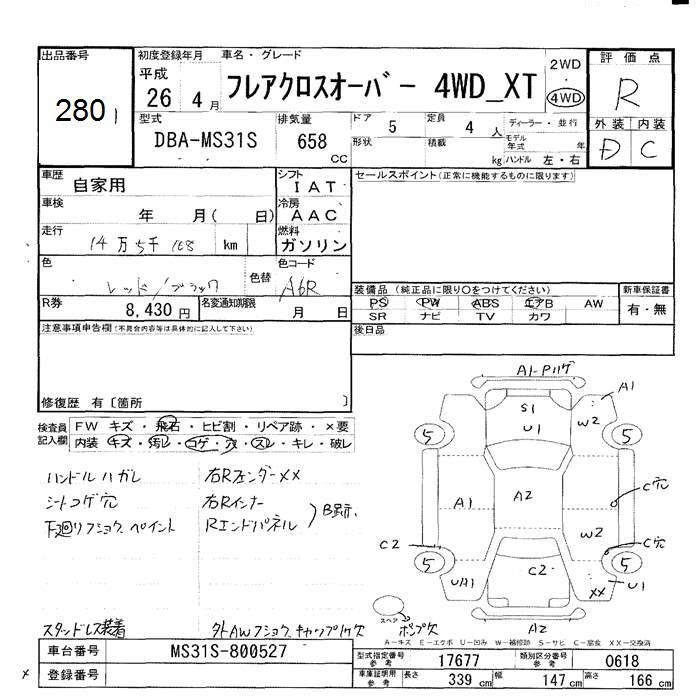 出品番号 初度登録年月 車名・グレード 評価点
280 平成 26 4月 フレアクロスオーバー 4WD_XT 2WD 4WD R
型式 DBA-MS31S 排気量 658 CC
ドア 5 定員 4 人 ディーラー・並行 外装 内装
形状 積載 kg モデル年式 年 ハンドル 左・右 D C
車歴 自家用 シフト IAT セールスポイント(正常に機能するものに限ります)
車検 年 月( 日) 冷房 AAC
走行 14万5千168 km 燃料 ガソリン
色 レッド/ブラック 色替 色コード A6R
装備品(純正品に限り○をつけてください) 新車保証書
R券 8,430円 名変通知期限 月 日 PS PW ABS エアB AW 有・無
SR ナビ TV カワ
注意事項申告欄(不具合内容等は具体的に記入して下さい) 後日品
修復歴 有〔箇所 〕
検査員記入欄 FW キズ・飛石・ヒビ割・リペア跡・×要
内装 キズ・汚レ・コゲ・穴・スレ・キレ・破レ
ハンドルハガレ 右Rフェンダー××
シートコゲ穴 右Rインナー
下廻りフショク、ペイント Rエンドパネル B跡示、
スタッドレス装着 外AWフショク、キャップ1ケ欠
A1-Pハゲ
A1
S1
U1
W2
5 5
A1 A2 C穴
W2
C2 C穴
5 5
C2
UA1 ×× U1
スペア ポンプ欠 A2
A-キズ E-エクボ U-凹み W-補修跡 S-サビ C-腐食 XX-交換済
車台番号 MS31S-800527 型式指定番号 参考 17677 類別区分番号 参考 0618
登録番号 車庫証明用 参考 長さ 339 cm 幅 147 cm 高さ 166 cm